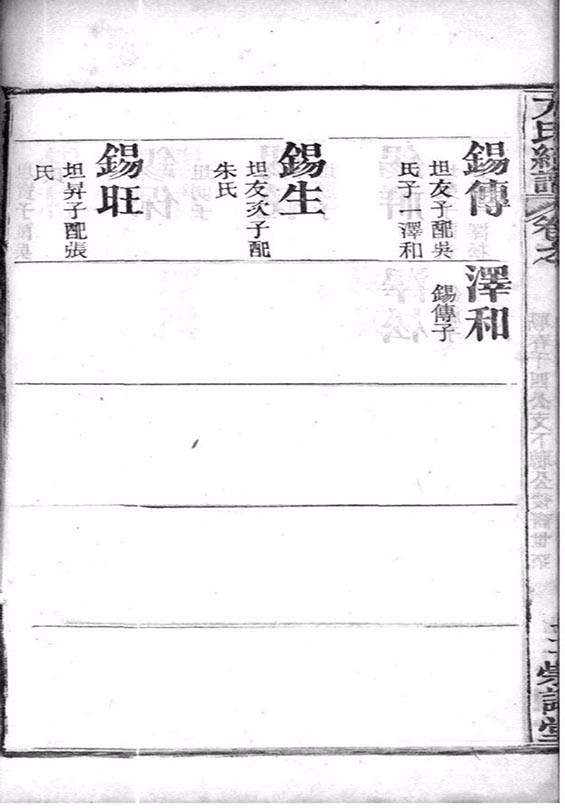 錫傳
坦友子配吳
氏子一澤和
錫生
坦友次子配
朱氏
錫旺
坦昇子配張
氏
澤和
錫傳子
氏經譜
卷之